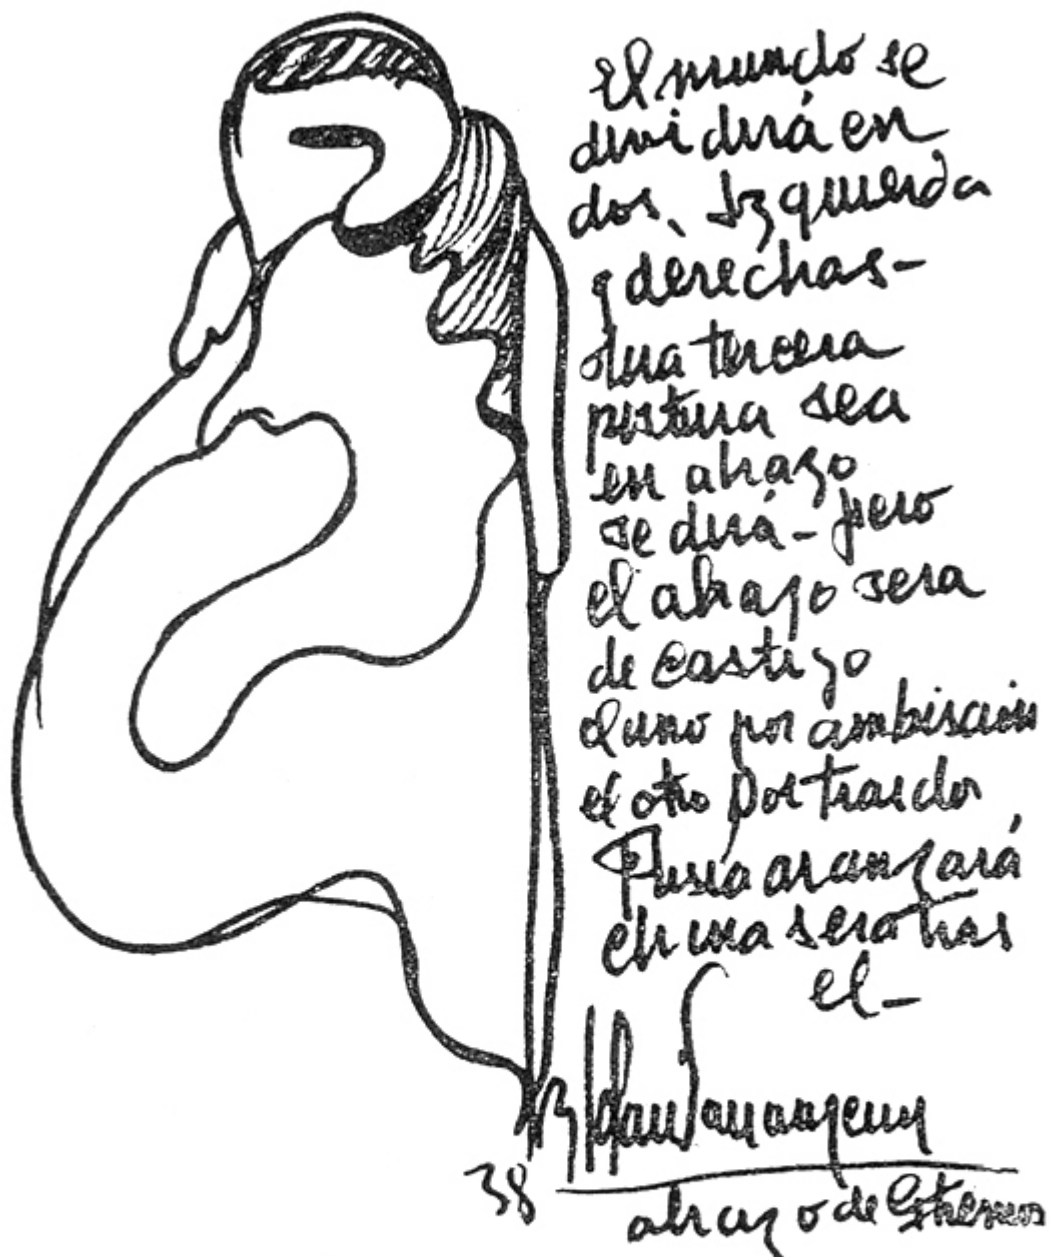 El mundo se
dividirá en
dos, Izquierda
y derechas-
Una tercera
postura sea
en abrazo
se dirá- pero
el abrazo sera
de castigo
el uno por ambiscion
el otro por
Rusia avanzará
china sera tras
el-
B Solari Parravicini
38
abrazo de